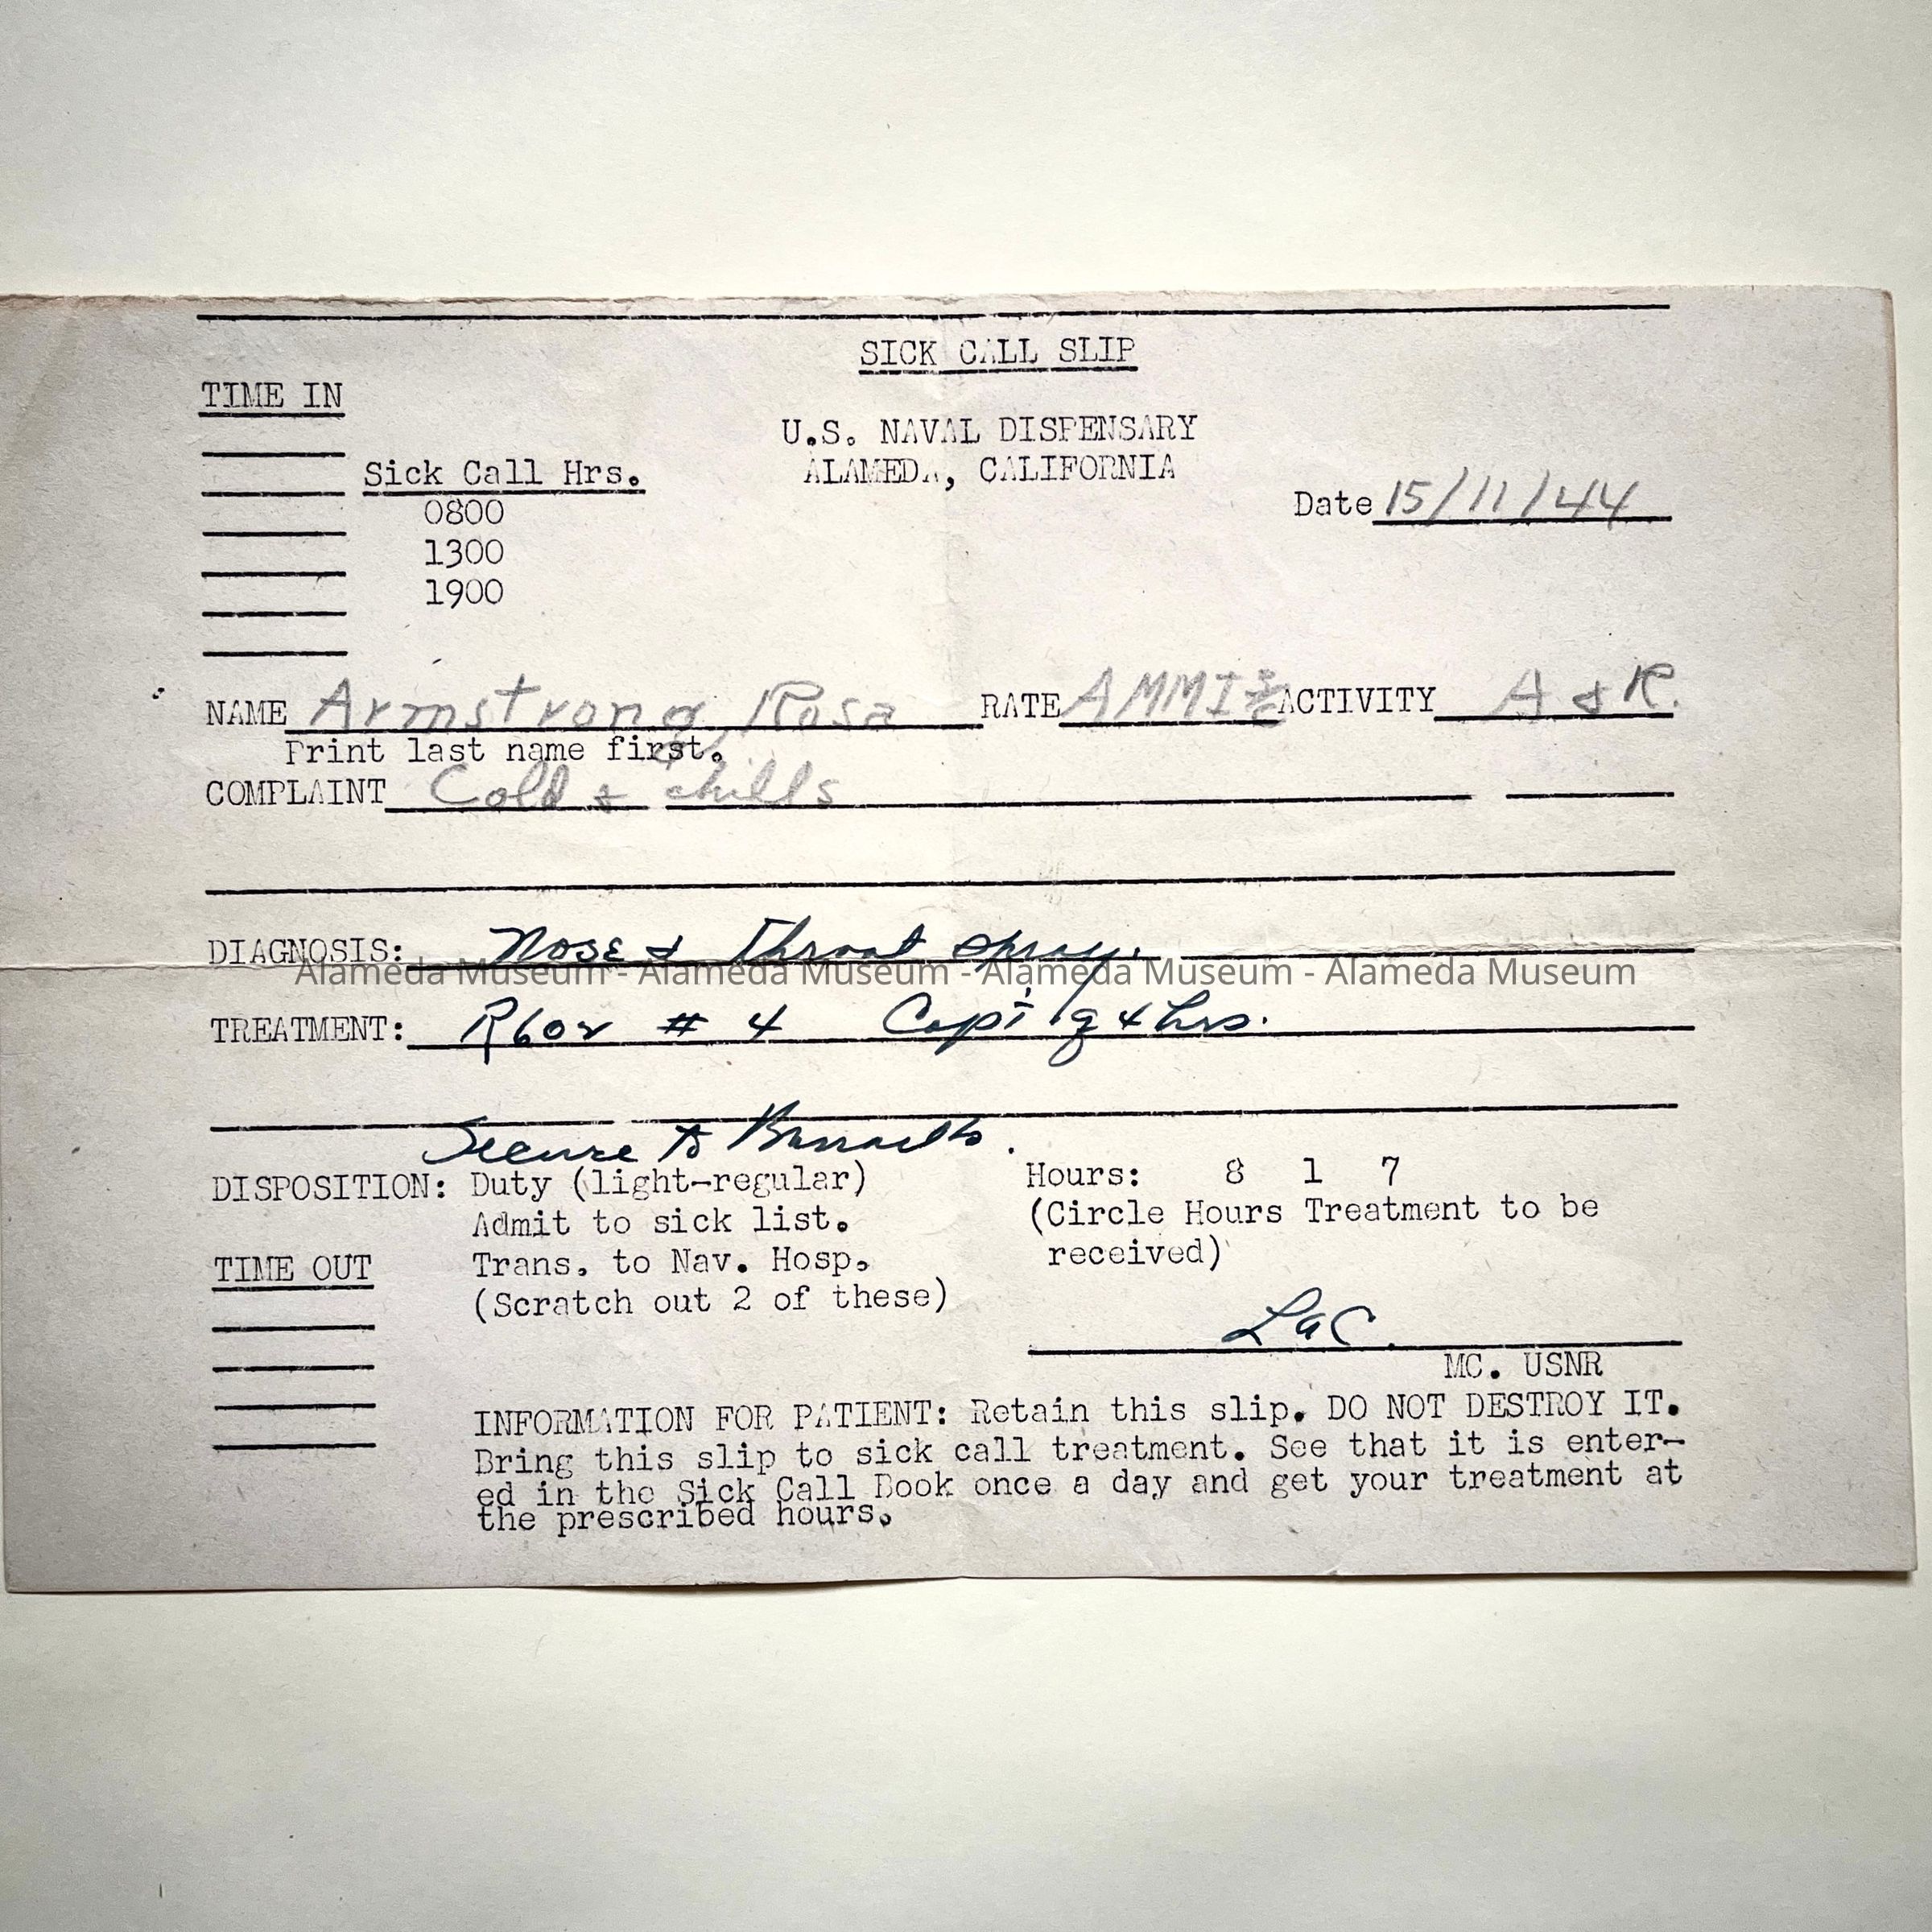 SICK CALL SLIP
TIME IN
U.S. NAVAL DISPENSARY
ALAMEDA, CALIFORNIA
Sick Call Hrs.
0800
1300
1900
Date 15/11/44
NAME Armstrong, Rosa RATE AMMI ACTIVITY A & R.
Print last name first.
COMPLAINT Cold & chills
DIAGNOSIS: Nose & Throat spray.
Alameda Museum - Alameda Museum - Alameda Museum - Alameda Museum
TREATMENT: # 4 Cap q 4 hrs.
Secure to Barracks.
DISPOSITION: Duty (light-regular) Hours: 8 1 7
Admit to sick list. (Circle Hours Treatment to be
TIME OUT Trans. to Nav. Hosp. received)
(Scratch out 2 of these)
LaC.
MC. USNR
INFORMATION FOR PATIENT: Retain this slip. DO NOT DESTROY IT.
Bring this slip to sick call treatment. See that it is enter-
ed in the Sick Call Book once a day and get your treatment at
the prescribed hours.